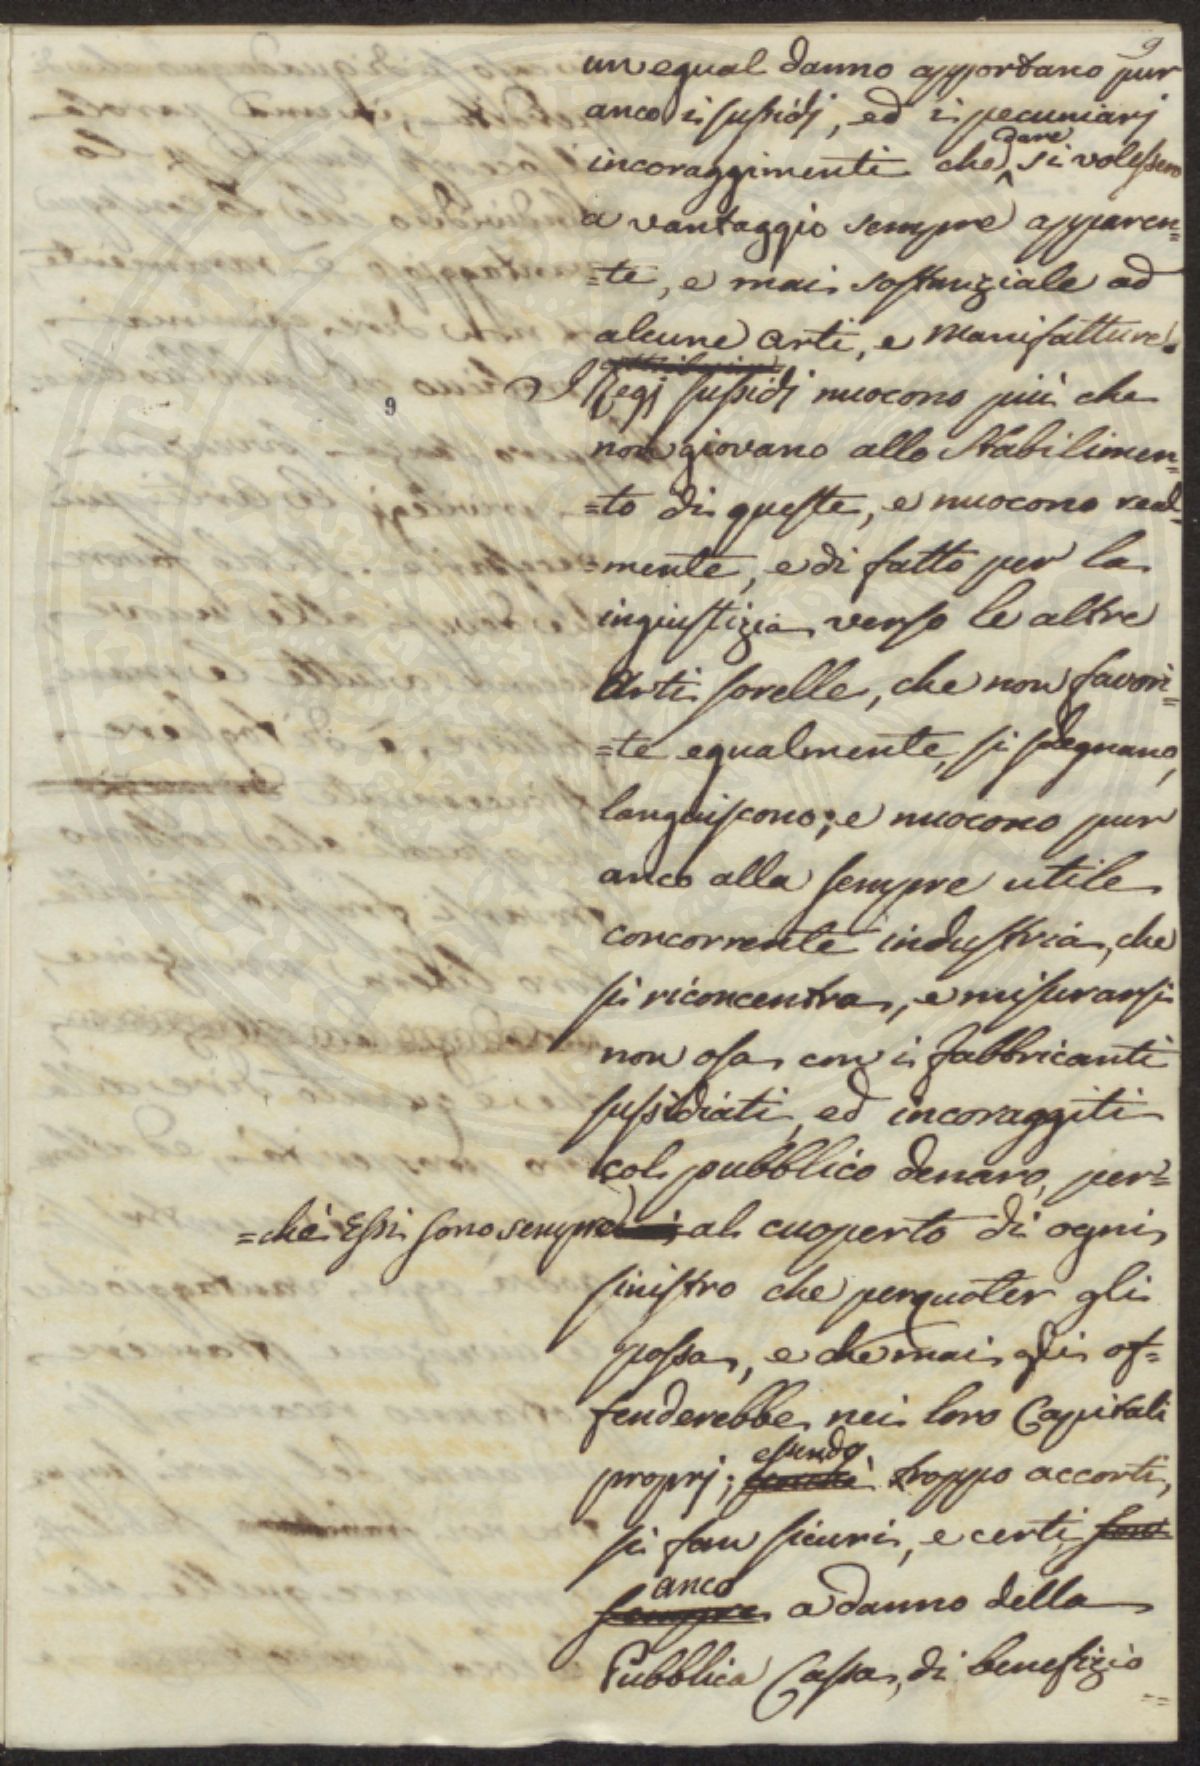 9
un egual danno apportano pur
anco i sussidj, ed i pecuniarj
dare
incoraggimenti che si volessero
a vantaggio sempre apparen=
=te, e mai sostanziale ad
alcune Arti, e Manifatture.
9
Regj sussidj nuocono più che
non giovano allo Stabilimen=
=to di queste, e nuocono real=
=mente, e di fatto per la
ingiustizia verso le altre
Arti sorelle, che non favori=
=te egualmente, si sdegnano,
languiscono; e nuocono pur
anco alla sempre utile
concorrente industria, che
si riconcentra, e misurarsi
non osa con i fabbricanti
sussidiati, ed incoraggiti
col pubblico denaro, per=
=chè Essi sono sempre al cuoperto di ogni
sinistro che perquoter gli
possa, e che mai gli of=
fenderebbe nei loro Capitali
essendo
proprj; troppo accorti,
si fan sicuri, e certi
anco
sempre a danno della
Pubblica Cassa, di benefizio
==